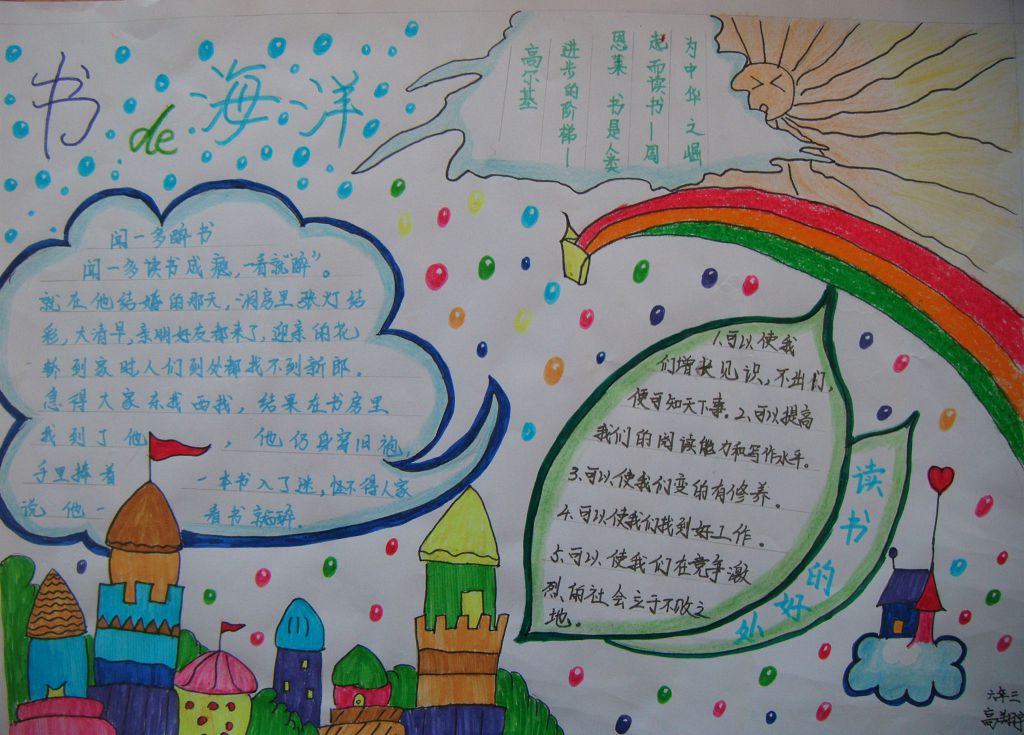 书de海洋
为中华之崛
起而读书—周
恩来 书是人类
进步的阶梯—
高尔基
闻一多醉书
闻一多读书成瘾,一看就“醉”。
就在他结婚的那天,洞房里张灯结
彩,大清早,亲朋好友都来了,迎亲的花
轿到家时人们到处都找不到新郎。
急得大家东找西找,结果在书房里
找到了他,他仍身穿旧袍,
手里捧着一本书入了迷,怪不得人家
说他一看书就醉。
1.可以使我
们增长见识,不出门,
便可知天下事。2.可以提高
我们的阅读能力和写作水平。
3.可以使我们变的有修养。
4.可以使我们找到好工作。
5.可以使我们在竞争激
烈的社会立于不败之
地。
读书的好妙
六年三
高翔宇